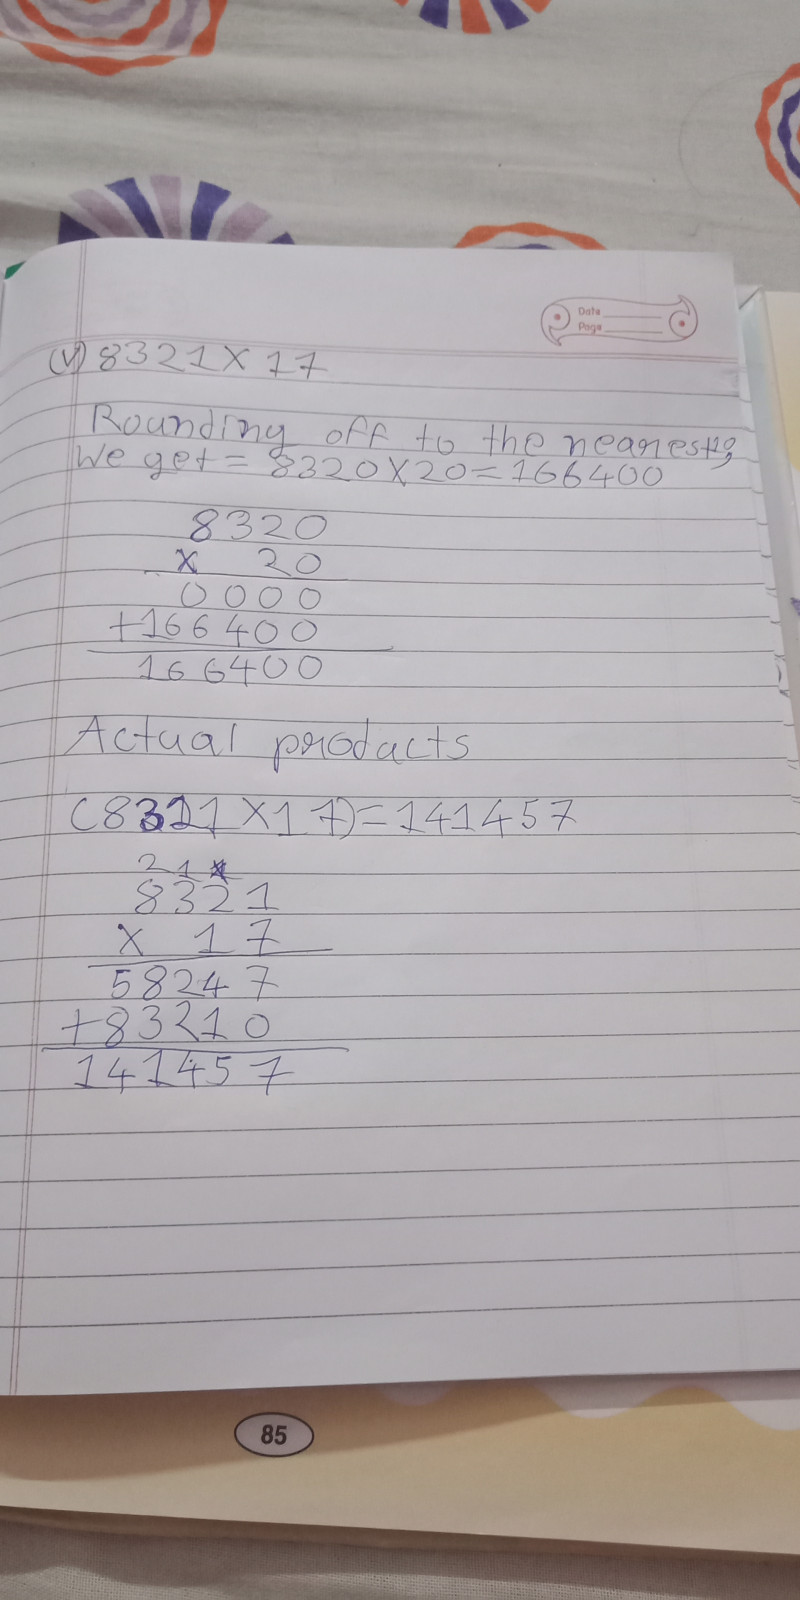 Date
Page
(v) 8321 X 17
Rounding off to the nearest 10,
We get = 8320 X 20 = 166400
8320
X 20
0000
+166400
166400
Actual products
(8321 X 17) = 141457
21
8321
X 17
58247
+83210
141457
85